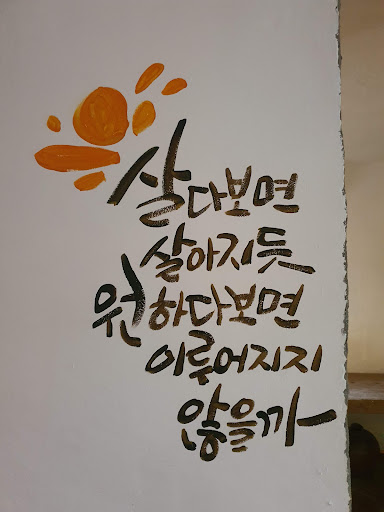 살다보면
살아지듯
원하다보면
이루어지지
않을까